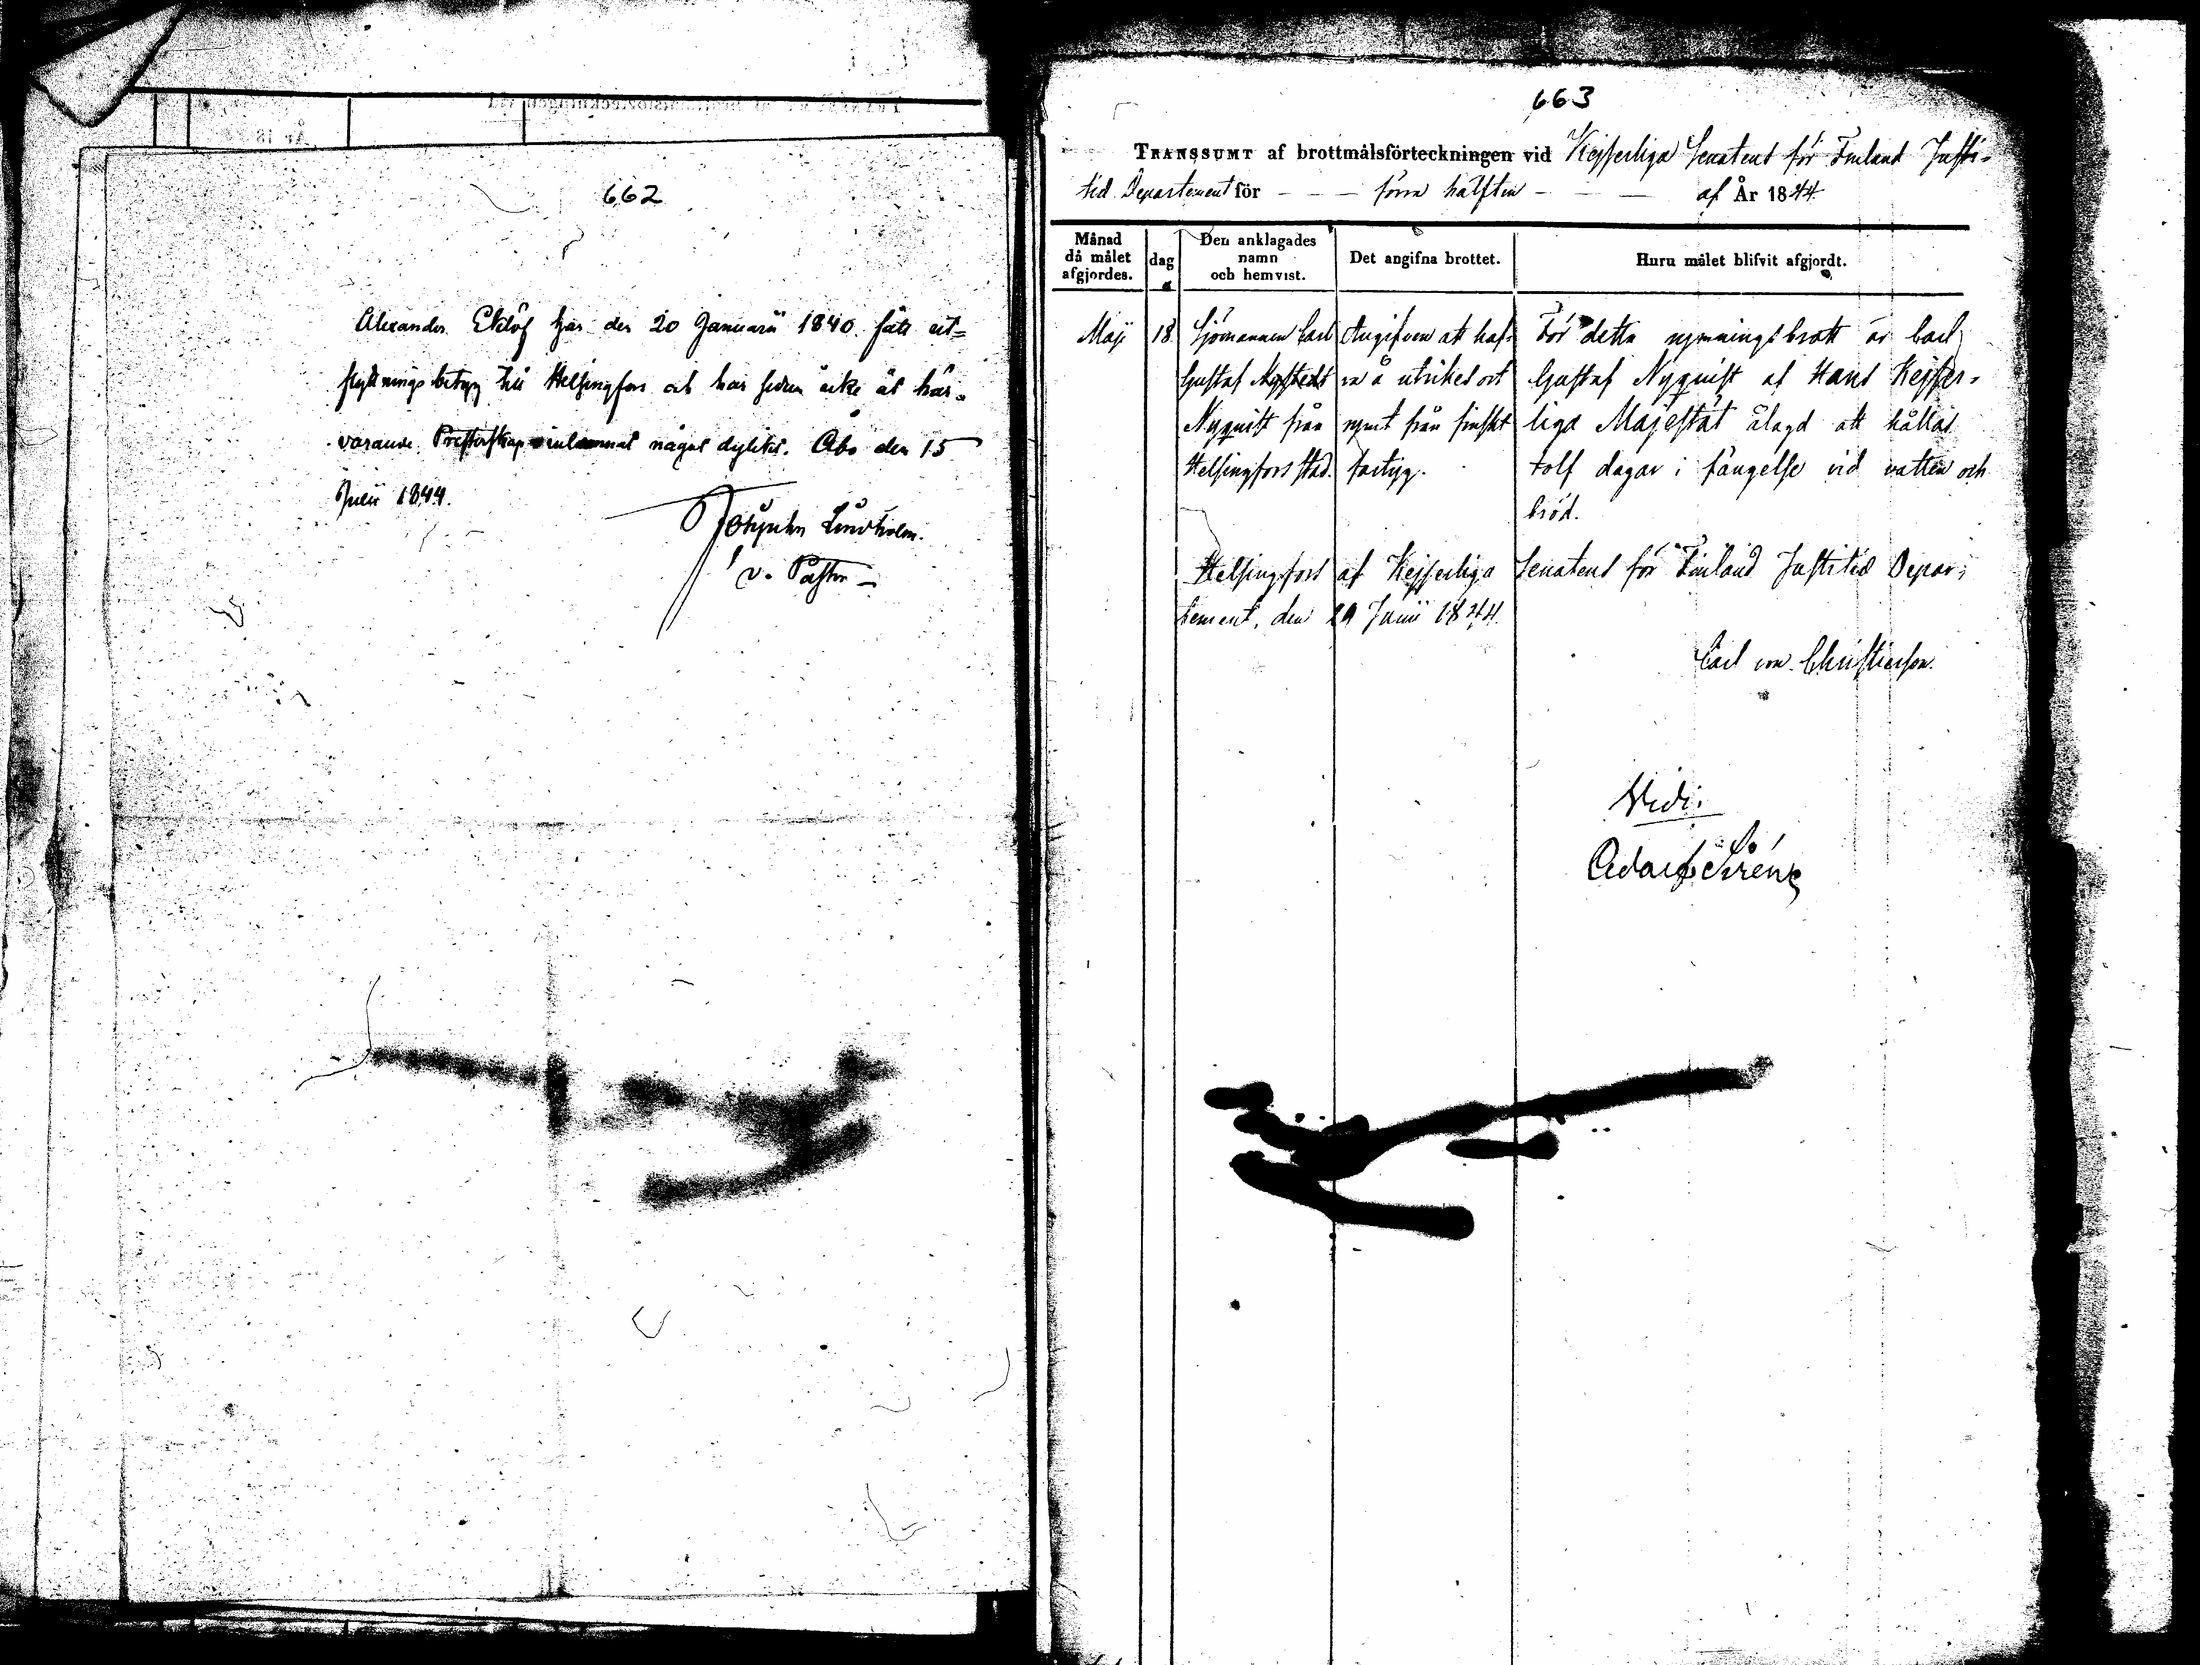 662
Alexander Eklöf har den 20 Januarii 1840 fått ut=
flyttnings betyg till Helsingfors och har sedan icke åt här=
varande Presterskap inlemnat något dylikt. Åbo den 15
Julii 1844.
Lindholm.
v. Pastor
663
TRANSSUMT af brottmålsförteckningen vid Kejserliga Senatens för Finland Justi=
tiæ Departement för - - - förra hälften - - af År 1844.
Månad då målet afgjordes.
dag
Den anklagades namn och hemvist.
Det angifna brottet.
Huru målet blifvit afgjordt.
Maji 18 Sjömannen Carl Angifven att haf= För detta rymningsbrott är Carl
Gustaf Nystedt va å utrikes ort Gustaf Nyquist af Hans Kejser=
Nyquist från rymt från finskt liga Majestät ålagd att hållas
Helsingfors stad. fartyg. tolf dagar i fängelse vid vatten och
bröd.
Helsingfors af Kejserliga Senatens för Finland Justitiæ Depar=
tement, den 29 Junii 1844.
Carl von Christierson.
Vidi:
Adolf Sirén